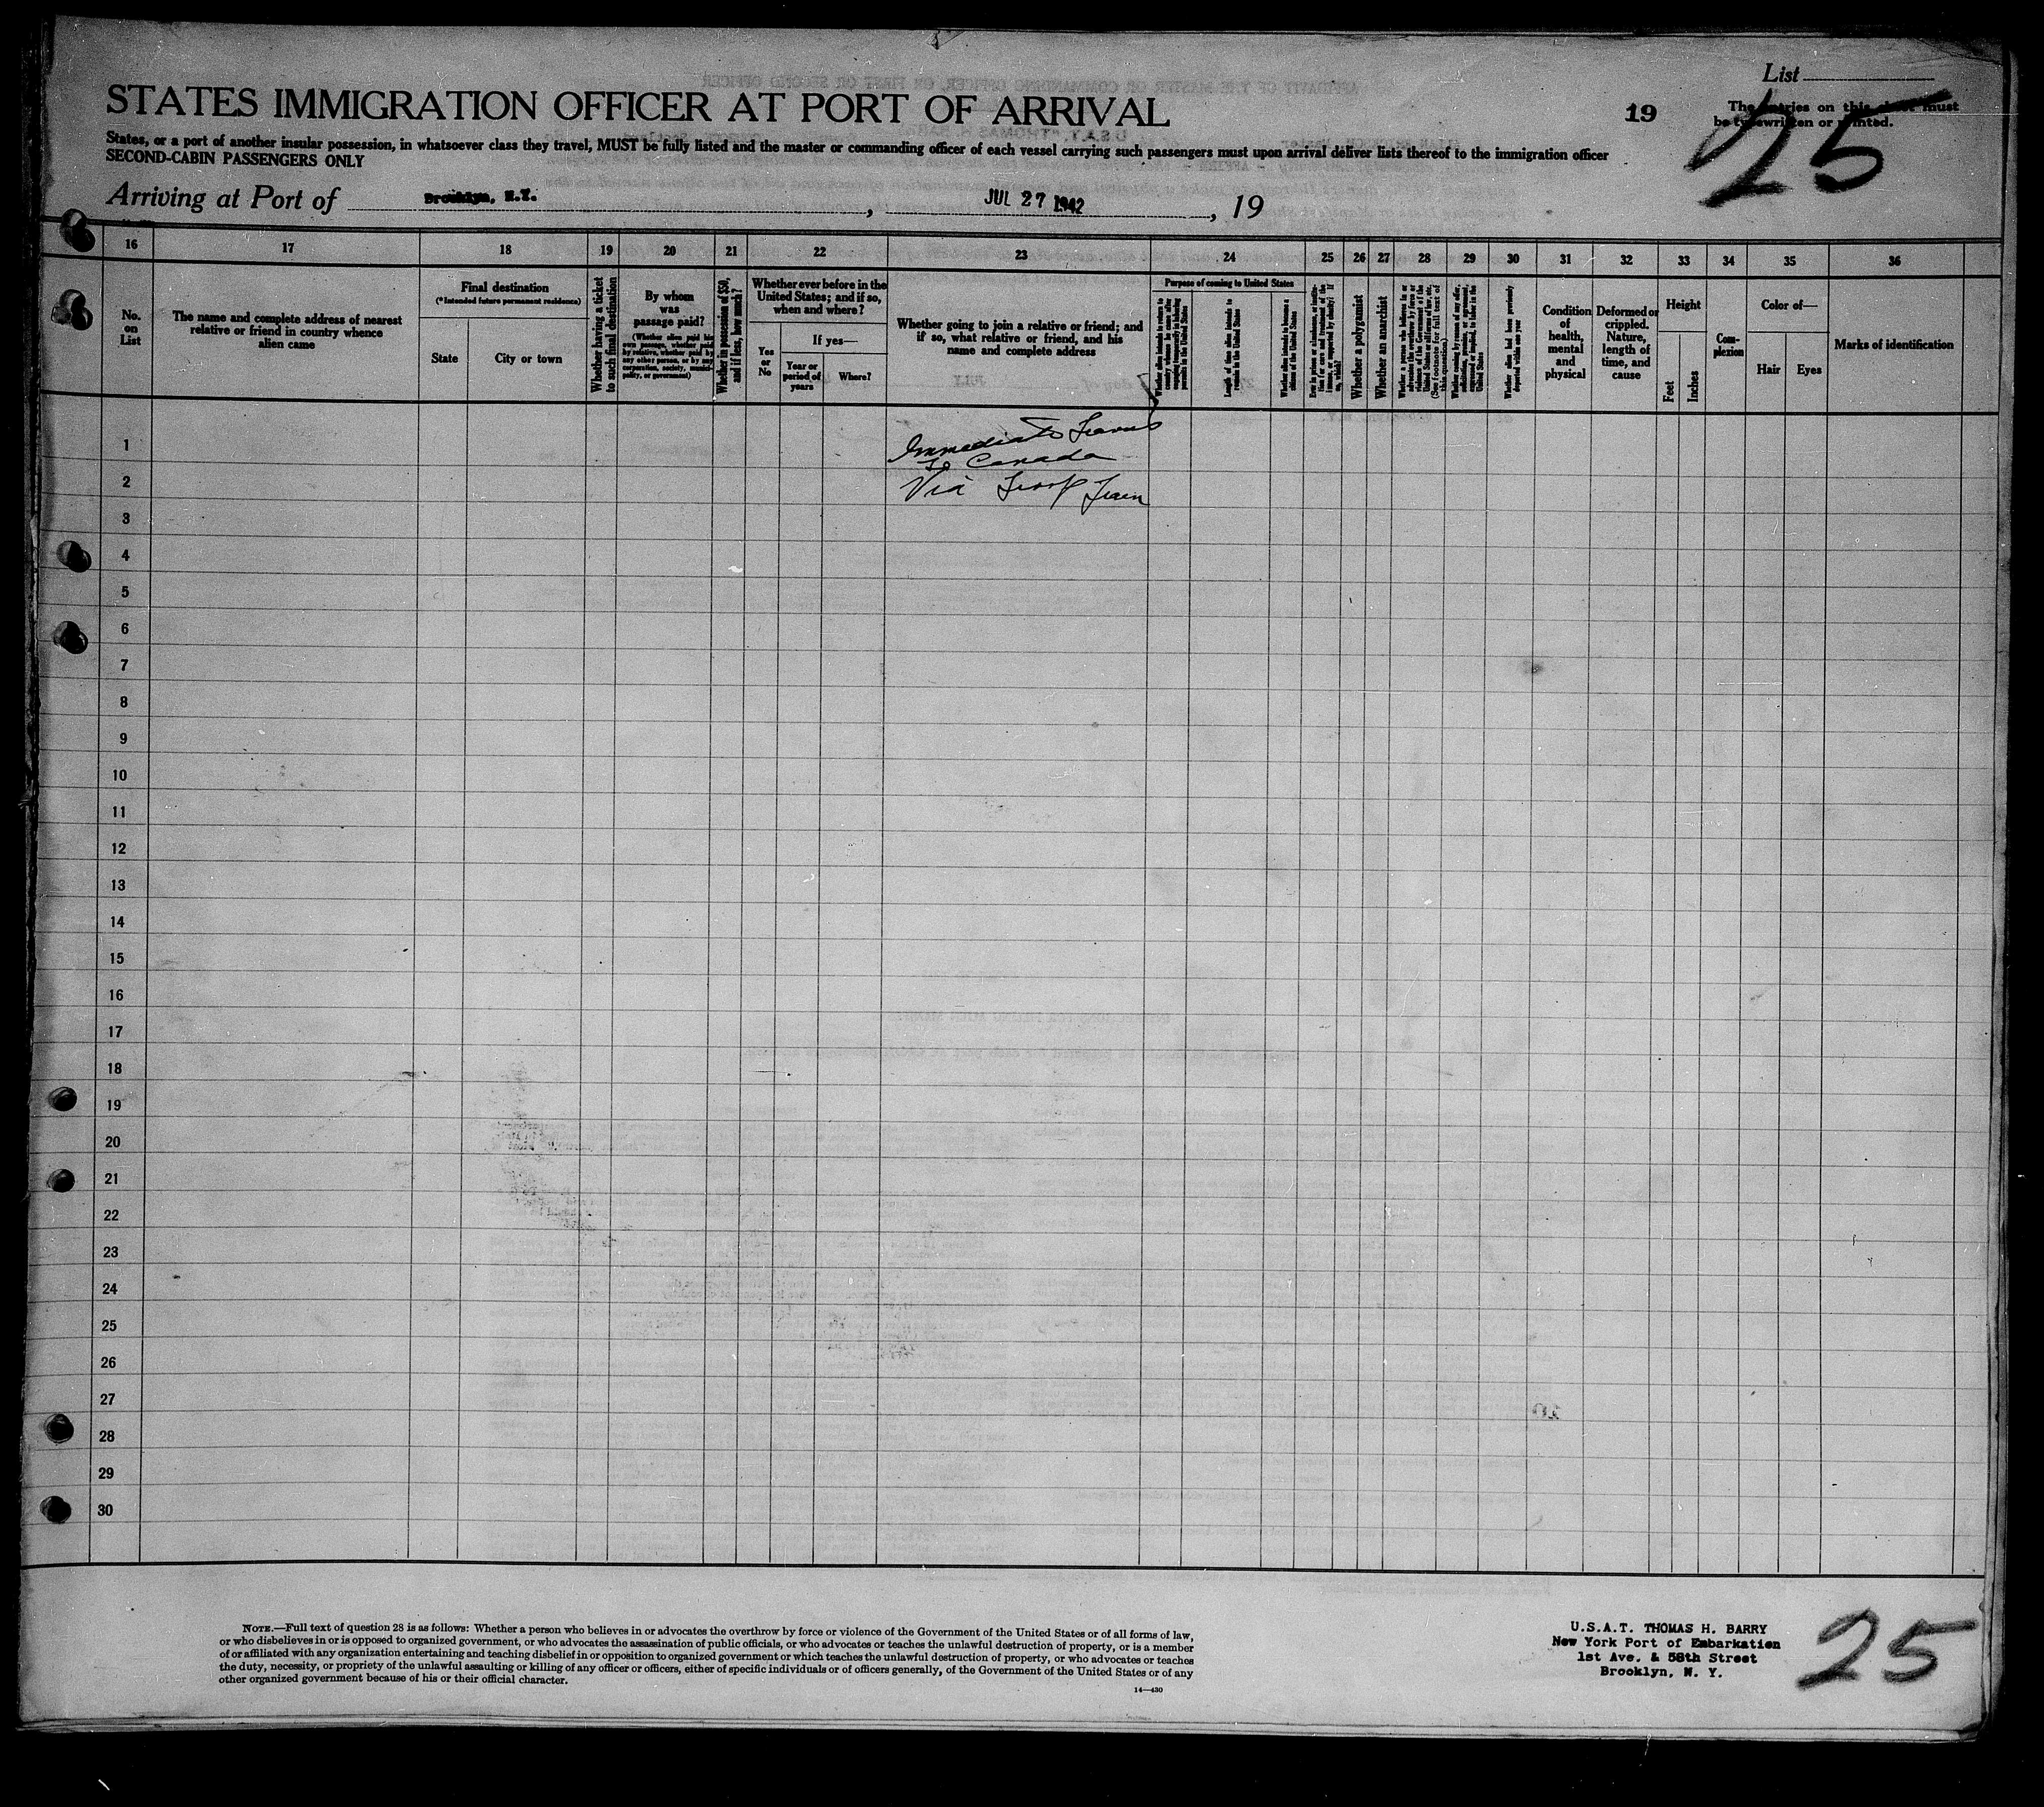 List
STATES IMMIGRATION OFFICER AT PORT OF ARRIVAL
19
The entries on this sheet must
be typewritten or printed.
25
States, or a port of another insular possession, in whatsoever class they travel, MUST be fully listed and the master or commanding officer of each vessel carrying such passengers must upon arrival deliver lists thereof to the immigration officer
SECOND-CABIN PASSENGERS ONLY
Arriving at Port of Brooklyn, N.Y. , JUL 27 1942 , 19
16 17 18 19 20 21 22 23 24 25 26 27 28 29 30 31 32 33 34 35 36
No. on List
The name and complete address of nearest relative or friend in country whence alien came
Final destination
(*Intended future permanent residence)
State
City or town
Whether having a ticket to such final destination
By whom was passage paid?
(Whether alien paid his own passage, whether paid by relative, whether paid by any other person, or by any corporation, society, municipality, or government)
Whether in possession of $50, and if less, how much?
Whether ever before in the United States; and if so, when and where?
Yes or No
If yes—
Year or period of years
Where?
Whether going to join a relative or friend; and if so, what relative or friend, and his name and complete address
Purpose of coming to United States
Length of time alien intends to remain in the United States
Whether alien intends to become a citizen of the United States
Whether a polygamist
Whether an anarchist
Whether alien had been previously deported within one year
Condition of health, mental and physical
Deformed or crippled. Nature, length of time, and cause
Height
Feet
Inches
Complexion
Color of—
Hair
Eyes
Marks of identification
1
Immediate
to Canada
2
Via Troop Train
3
4
5
6
7
8
9
10
11
12
13
14
15
16
17
18
19
20
21
22
23
24
25
26
27
28
29
30
NOTE.—Full text of question 28 is as follows: Whether a person who believes in or advocates the overthrow by force or violence of the Government of the United States or of all forms of law,
or who disbelieves in or is opposed to organized government, or who advocates the assassination of public officials, or who advocates or teaches the unlawful destruction of property, or is a member
of or affiliated with any organization entertaining and teaching disbelief in or opposition to organized government or which teaches the unlawful destruction of property, or who advocates or teaches
the duty, necessity, or propriety of the unlawful assaulting or killing of any officer or officers, either of specific individuals or of officers generally, of the Government of the United States or of any
other organized government because of his or their official character.
14—430
U.S.A.T. THOMAS H. BARRY
New York Port of Embarkation
1st Ave. & 58th Street
Brooklyn, N. Y.
25